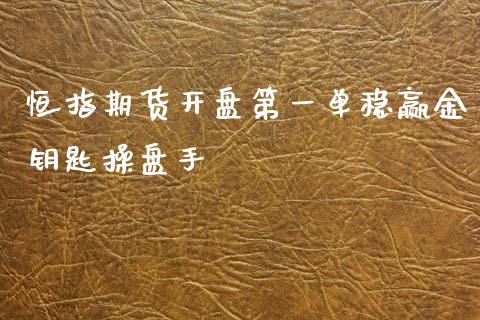 恒指期货开盘第一单稳赢金
钥匙操盘手